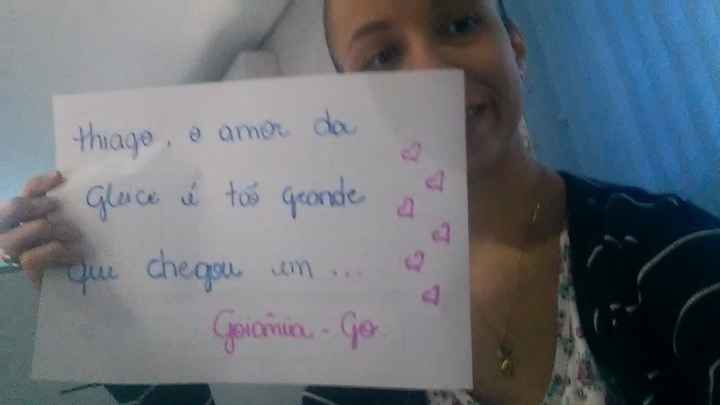 thiago, o amor da
Gleice é tão grande
que chegou em ...
Goiânia - Go